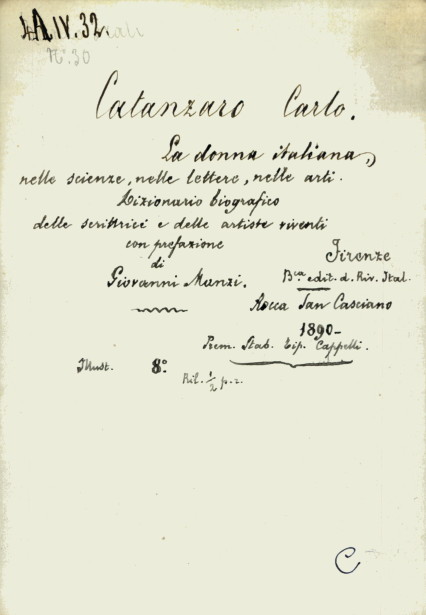 A IV. 32
N.° 30
Catanzaro Carlo.
La donna italiana,
nelle scienze, nelle lettere, nelle arti.
Dizionario biografico
delle scrittrici e delle artiste viventi
con prefazione
di
Giovanni Manzi.
Firenze
Bca edit. d. Riv. Ital.
Rocca San Casciano
1890-
Prem. Stab. Tip. Cappelli.
Illust. 8°
Ril. 1/2 p.
C